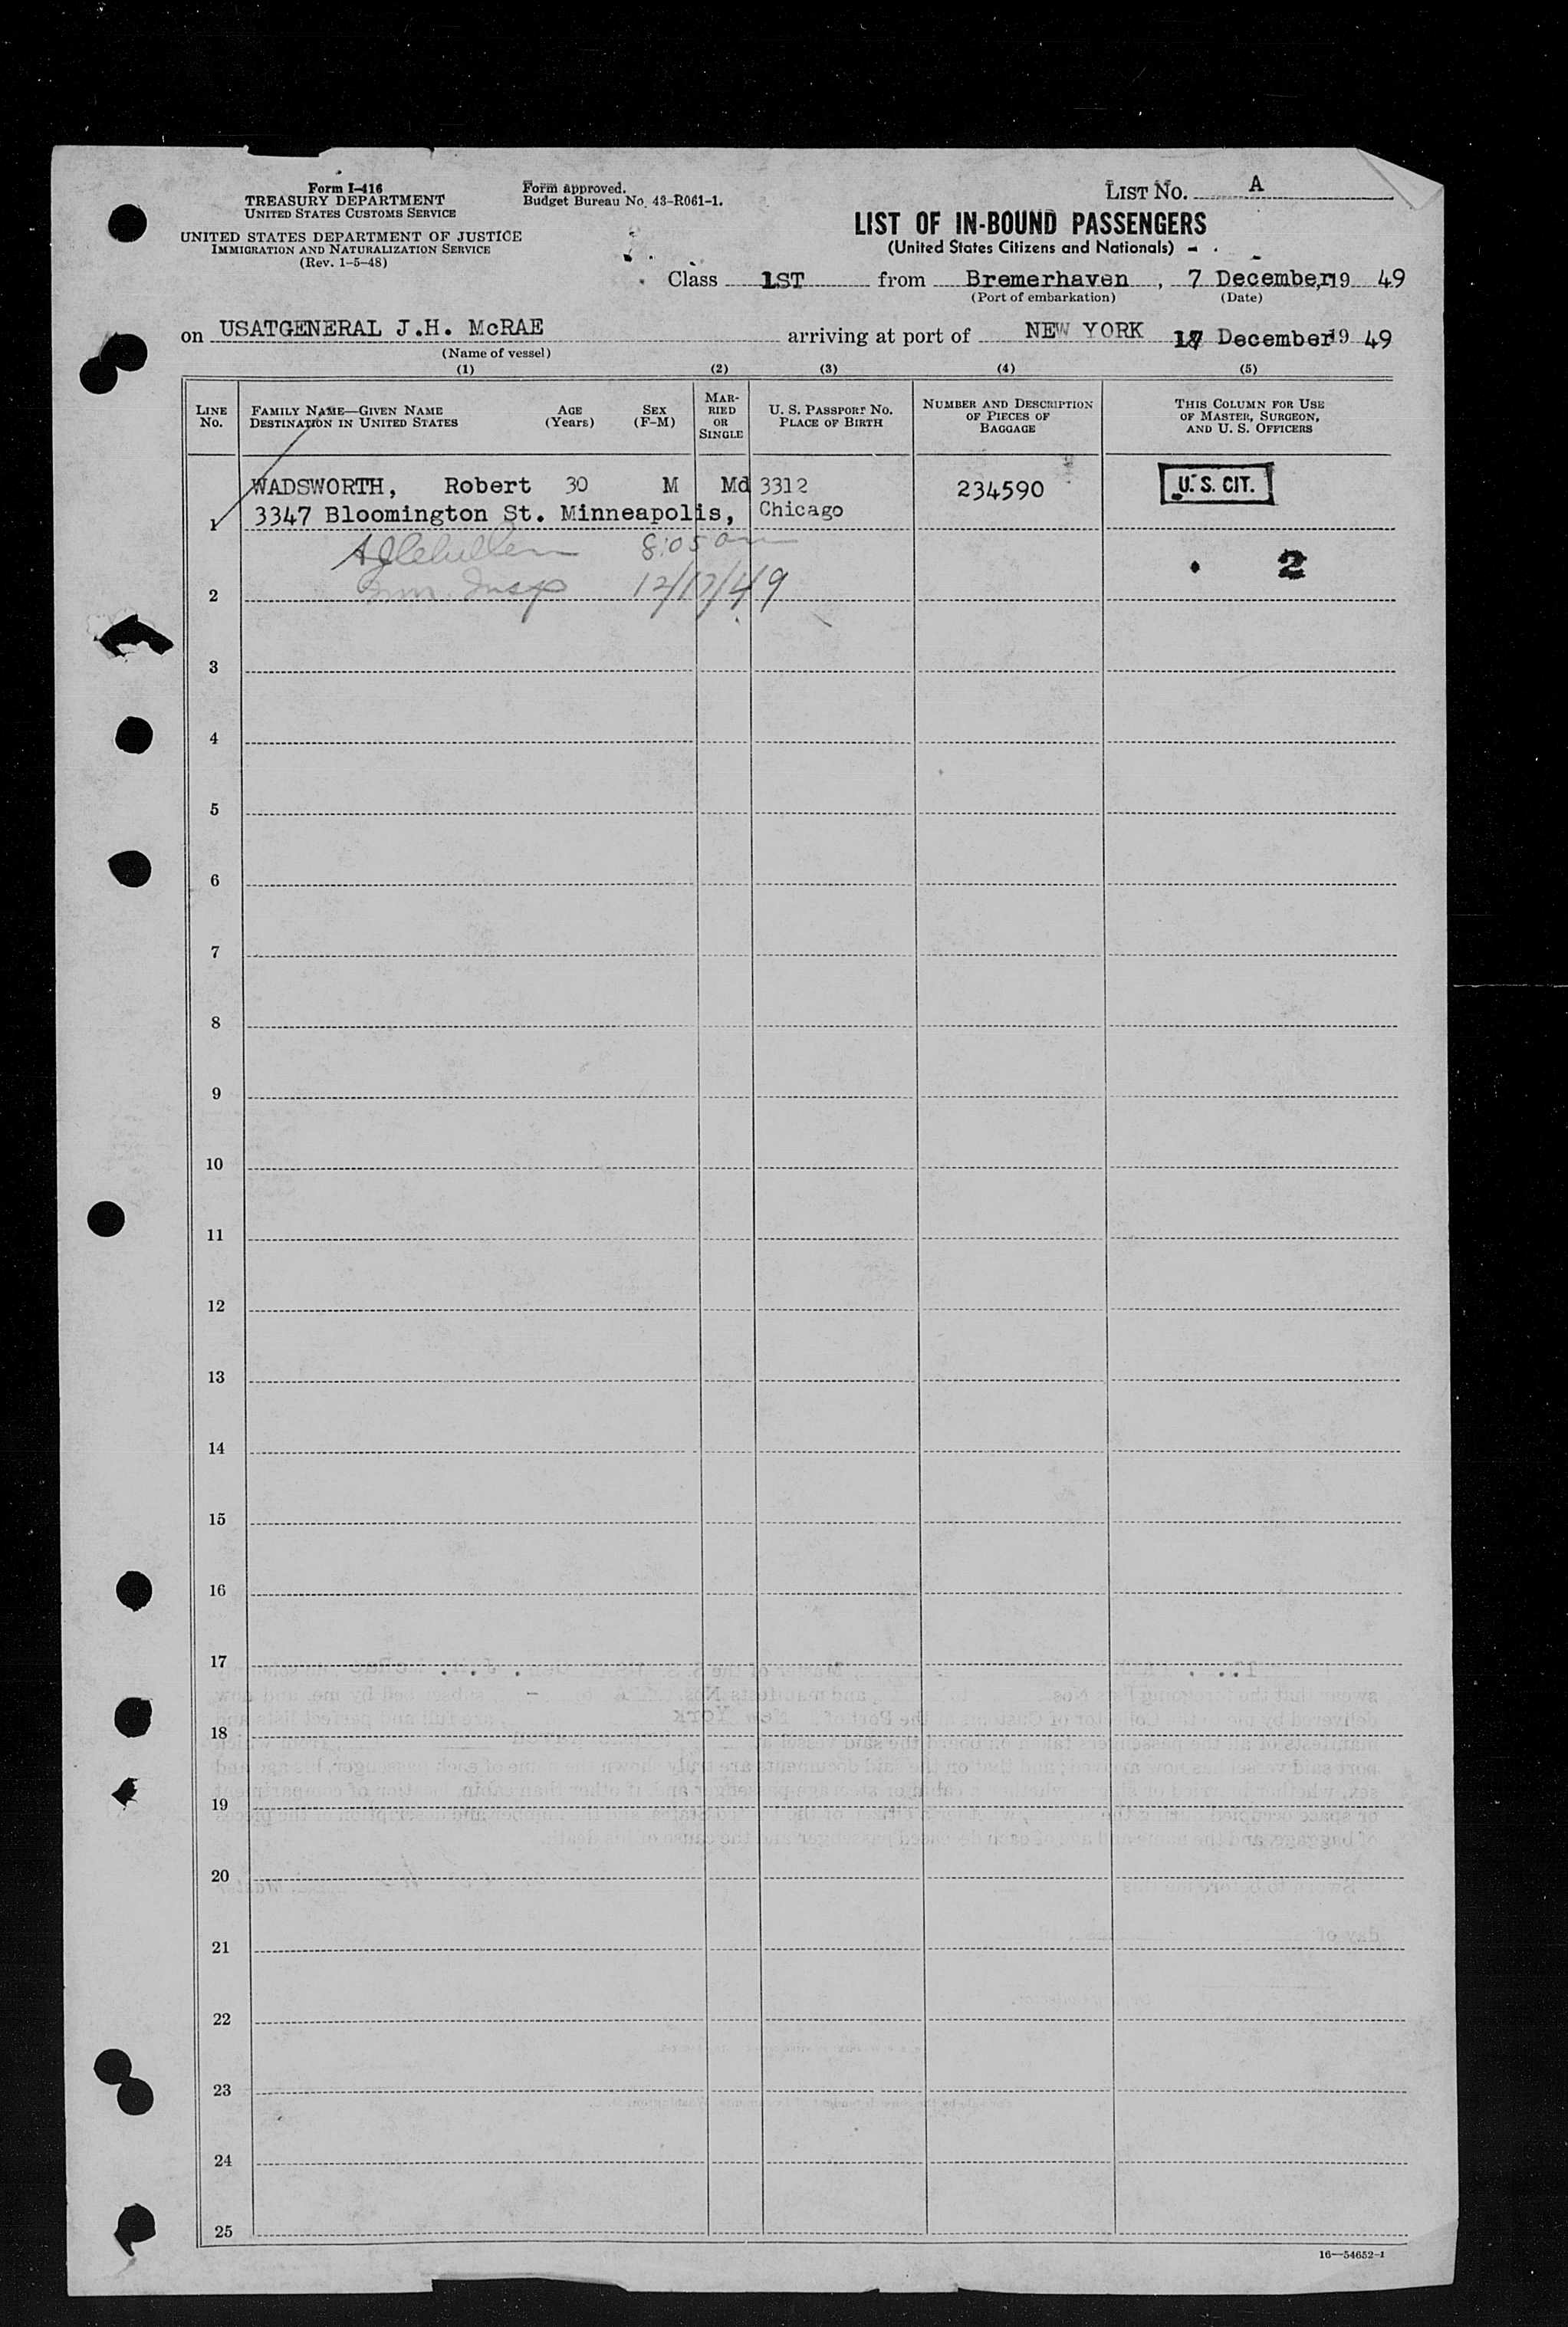 Form I-416
TREASURY DEPARTMENT
UNITED STATES CUSTOMS SERVICE
UNITED STATES DEPARTMENT OF JUSTICE
IMMIGRATION AND NATURALIZATION SERVICE
(Rev. 1-5-48)
Form approved.
Budget Bureau No. 43-R061-1.
LIST No. A
LIST OF IN-BOUND PASSENGERS
(United States Citizens and Nationals)
Class 1ST from Bremerhaven, 7 December, 1949
(Port of embarkation) (Date)
on USATGENERAL J.H. McRAE arriving at port of NEW YORK 17 December 1949
(Name of vessel)
(1) (2) (3) (4) (5)
LINE No.
FAMILY NAME—GIVEN NAME
DESTINATION IN UNITED STATES
AGE (Years)
SEX (F-M)
MARRIED OR SINGLE
U. S. PASSPORT No.
PLACE OF BIRTH
NUMBER AND DESCRIPTION OF PIECES OF BAGGAGE
THIS COLUMN FOR USE OF MASTER, SURGEON, AND U. S. OFFICERS
WADSWORTH, Robert 30 M Md 3312 234590 U. S. CIT.
1 3347 Bloomington St. Minneapolis, Chicago
8:05 am 2
2 Imm. Insp 12/17/49
3
4
5
6
7
8
9
10
11
12
13
14
15
16
17
18
19
20
21
22
23
24
25
16—54652-1